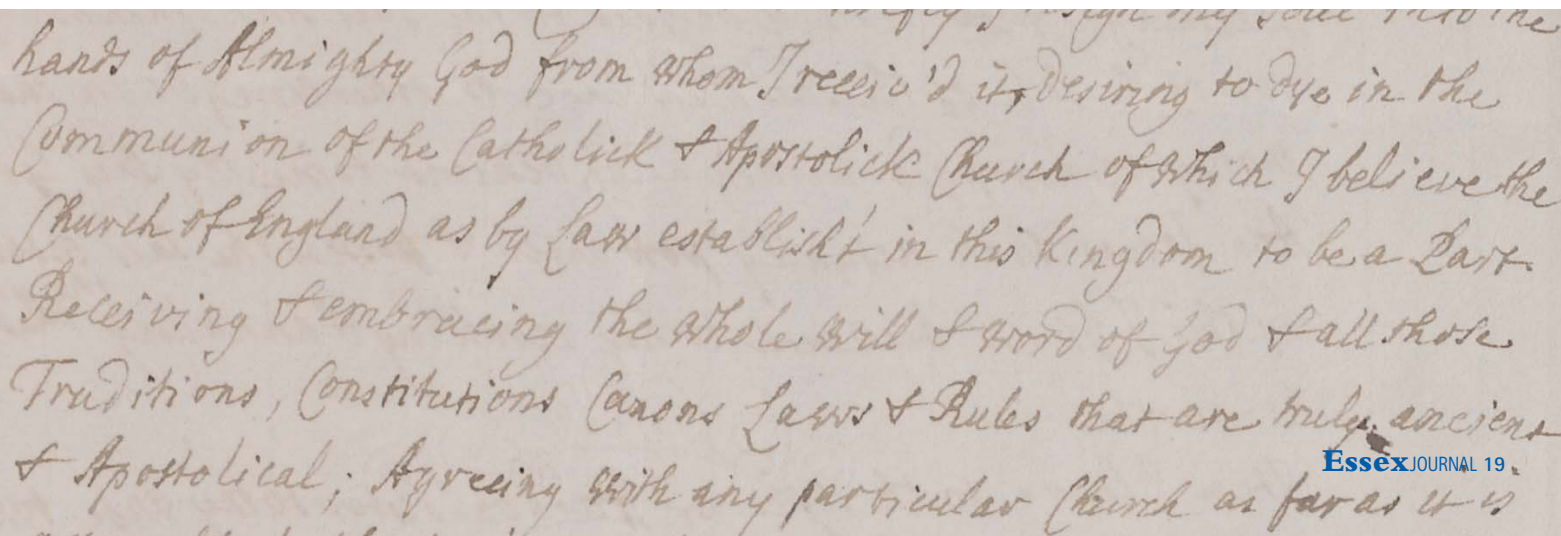 I resign my soul into the
hands of Almighty God from whom I receiv'd it, desiring to dye in the
Communion of the Catholick & Apostolick Church of which I believe the
Church of England as by Law establish't in this Kingdom to be a Part
Receiving & embracing the whole will & word of God & all those
Traditions, Constitutions Canons Laws & Rules that are truly ancient
& Apostolical; Agreeing with any particular Church as far as it is
Essex JOURNAL 19